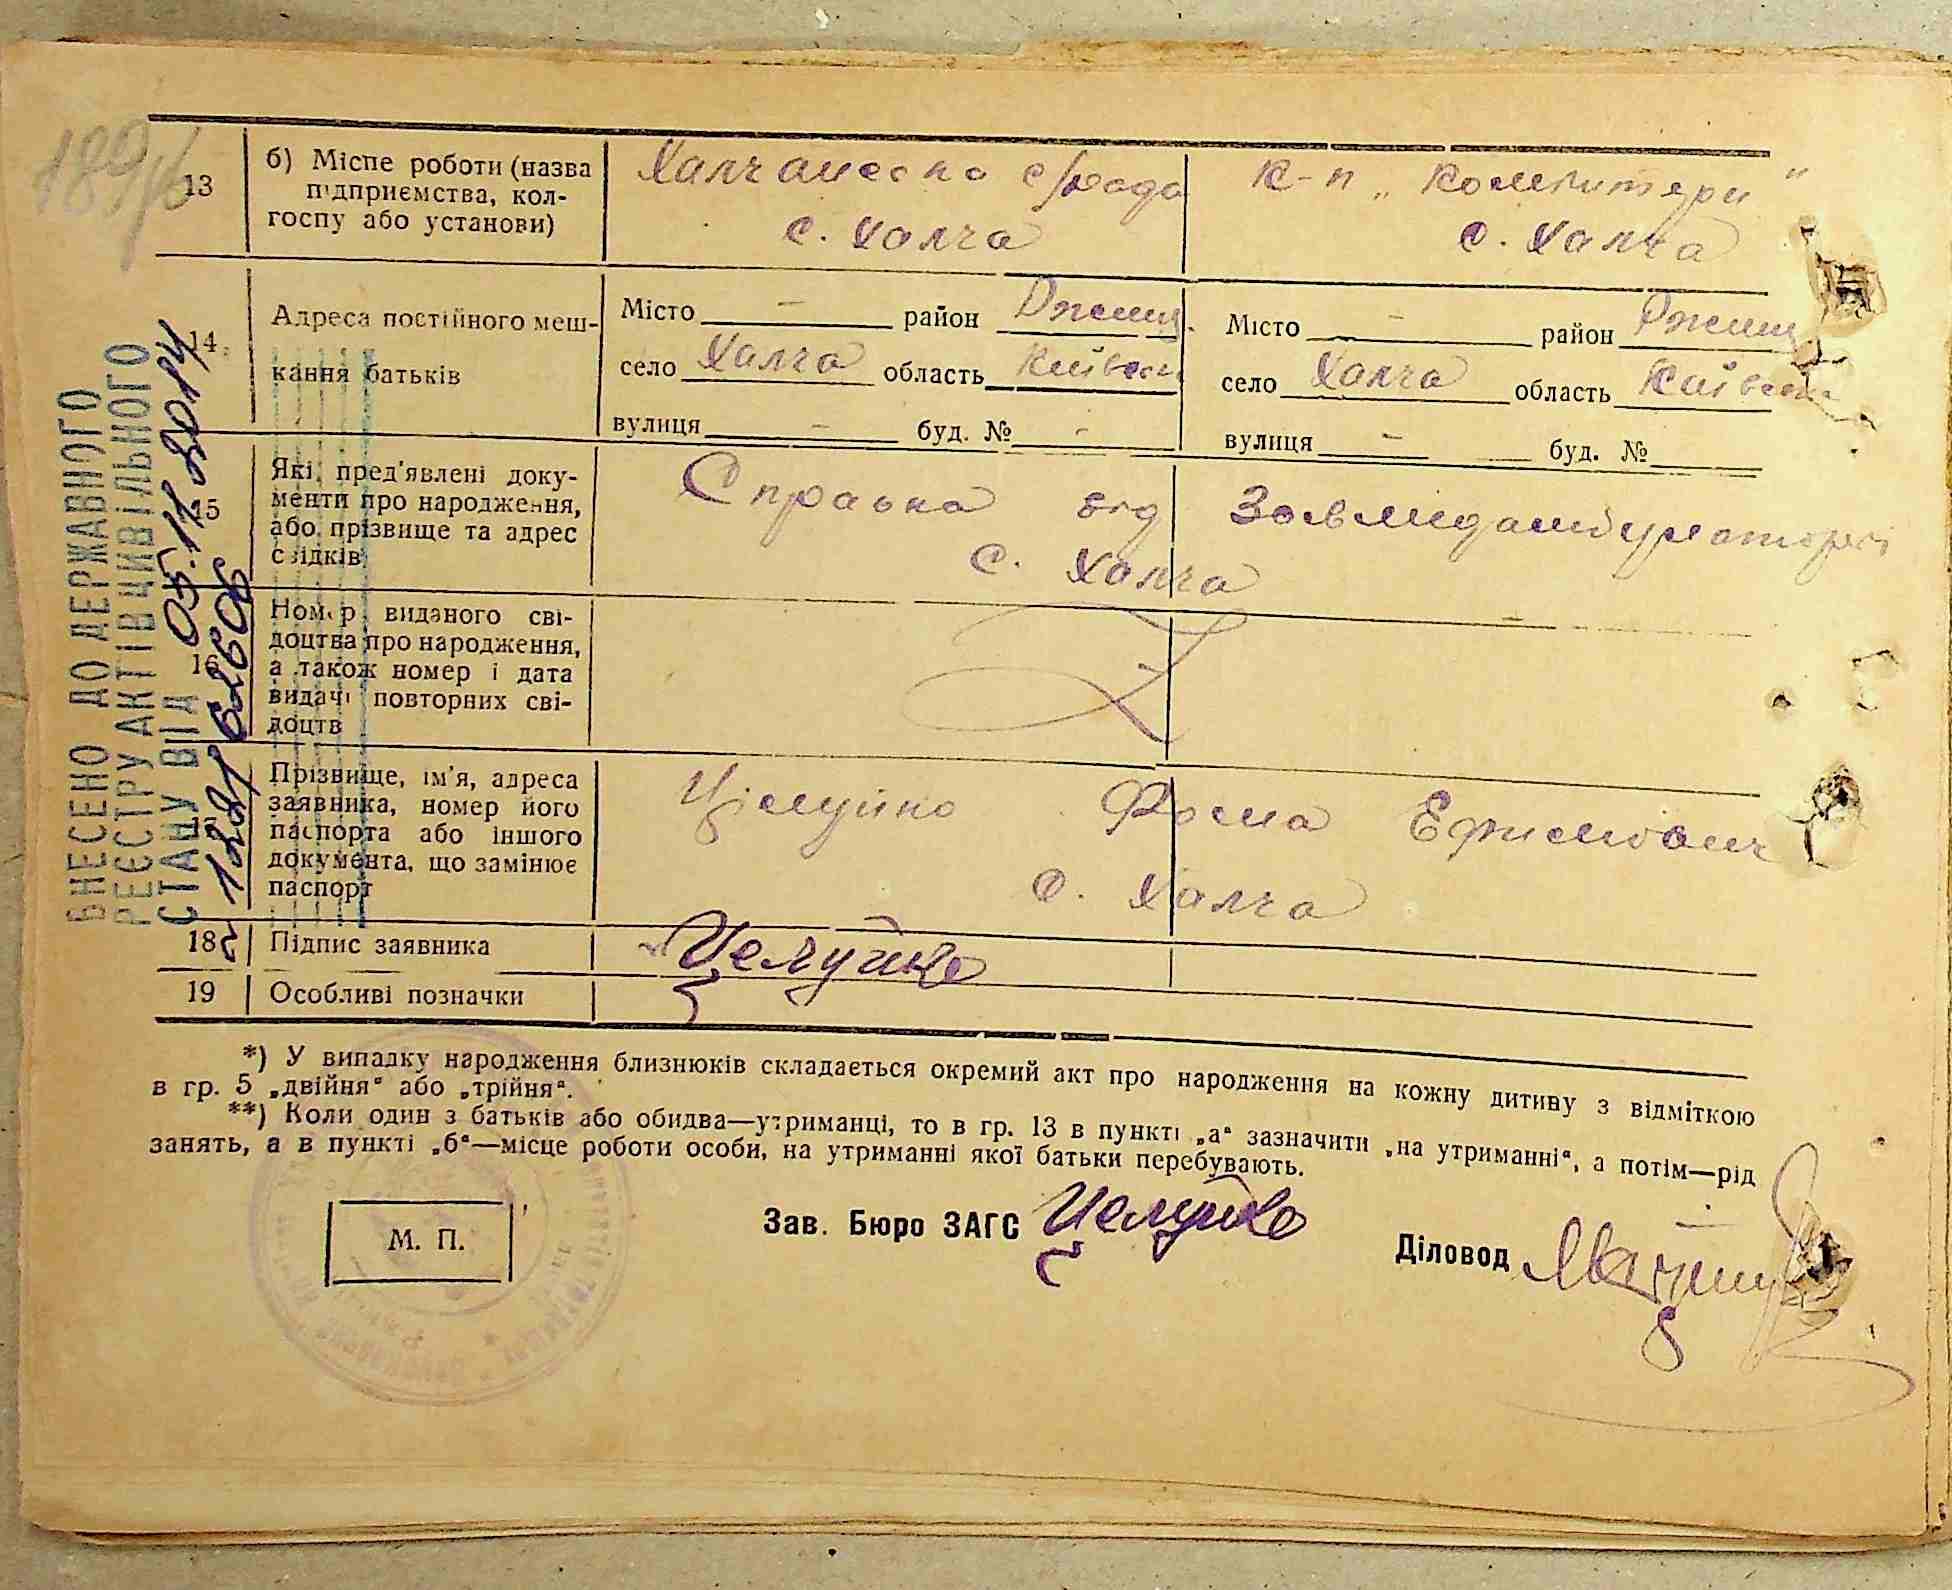 189
13
б) Місце роботи (назва
підприємства, кол-
госпу або установи)
Халчанська с/рада
с. Халча
К-п „Комінтерн"
с. Халча
14.
Адреса постійного меш-
кання батьків
Місто - район Ржищ.
село Халча область Київськ
вулиця - буд. № -
Місто - район Ржищ
село Халча область Київськ
вулиця - буд. №
15
Які пред'явлені доку-
менти про народження,
або прізвище та адрес
свідків
Справка від
с. Халча
16
Номер виданого сві-
доцтва про народження,
а також номер і дата
видачі повторних сві-
доцтв
17
Прізвище, ім'я, адреса
заявника, номер його
паспорта або іншого
документа, що замінює
паспорт
Цілуйко Фома Ефимович
с. Халча
18
Підпис заявника
Целуйко
19
Особливі позначки
ВНЕСЕНО ДО ДЕРЖАВНОГО
РЕЄСТРУ АКТІВ ЦИВІЛЬНОГО
СТАНУ ВІД 05.11.2014
*) У випадку народження близнюків складається окремий акт про народження на кожну дитину з відміткою
в гр. 5 „двійня" або „трійня".
**) Коли один з батьків або обидва—утриманці, то в гр. 13 в пункті „а" зазначити „на утриманні", а потім—рід
занять, а в пункті „б"—місце роботи особи, на утриманні якої батьки перебувають.
М. П.
Зав. Бюро ЗАГС Целуйко
Діловод